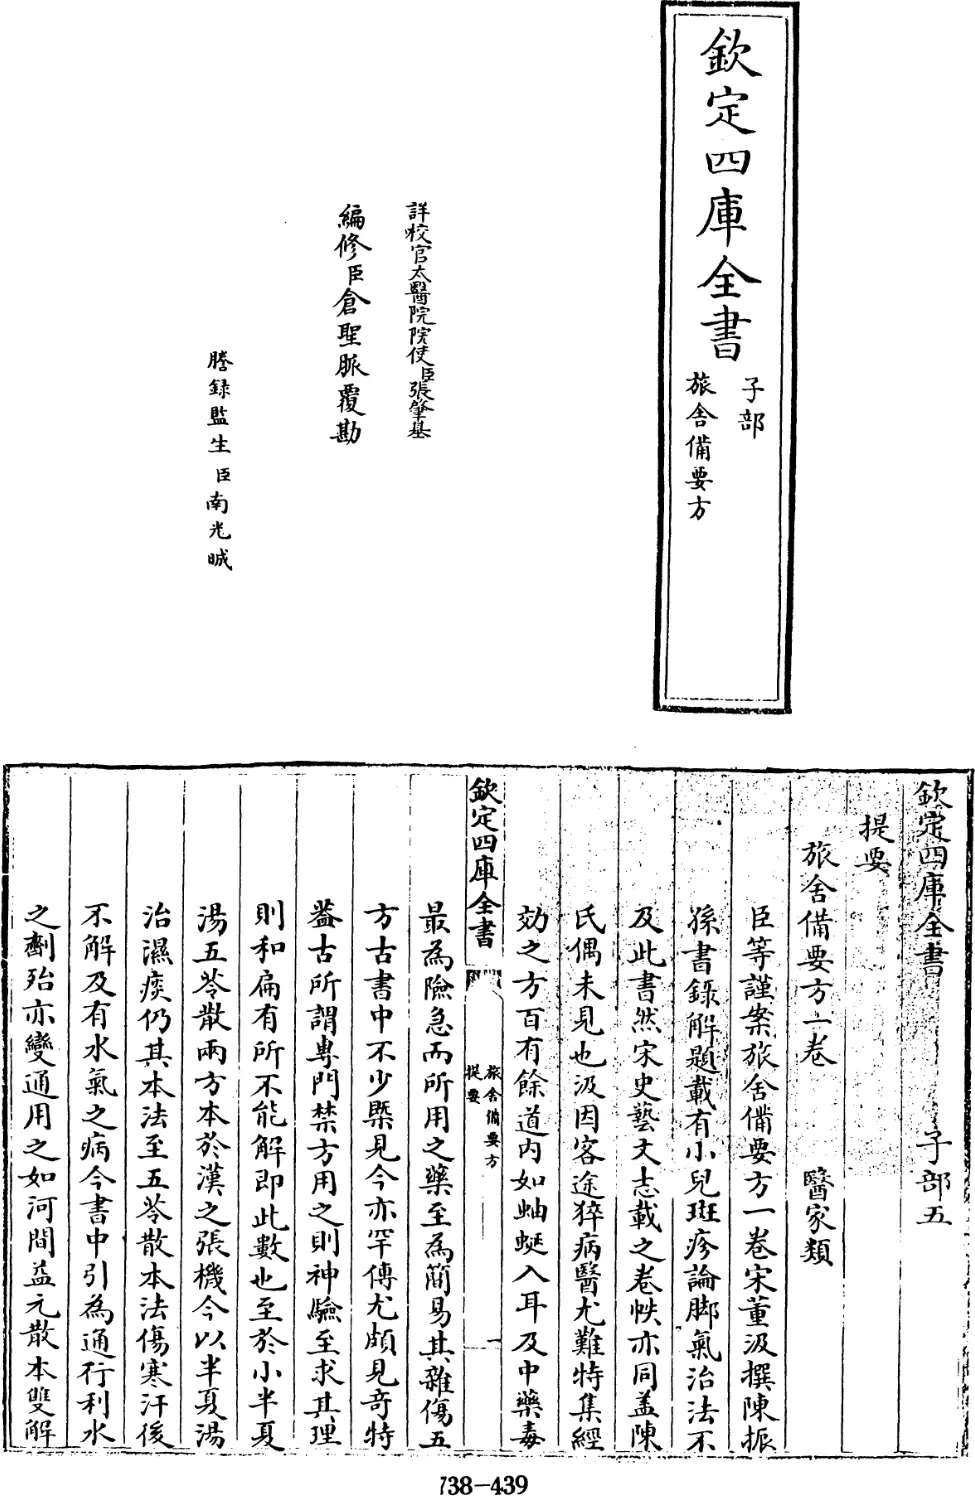 欽定四庫全書
子部
旅舍備要方
詳校官太醫院院使臣張肇基
編修臣倉聖脈覆勘
謄錄監生臣南光㬇
欽定四庫全書
子部五
提要
旅舍備要方一卷
醫家類
臣等謹案旅舍備要方一卷宋董汲撰陳振
孫書錄解題載有小兒斑疹論脚氣治法不
及此書然宋史藝文志載之卷帙亦同盖陳
氏偶未見也汲因客途猝病醫尤難特集經
効之方百有餘道内如蚰蜒入耳及中藥毒
欽定四庫全書
旅舍備要方
提要
一
最為險急而所用之藥至為簡易其雜傷五
方古書中不少槩見今亦罕傳尤頗見奇特
葢古所謂專門禁方用之則神驗至求其理
則和扁有所不能解即此數也至於小半夏
湯五苓散兩方本於漢之張機今以半夏湯
治濕痰仍其本法至五苓散本法傷寒汗後
不解及有水氣之病今書中引為通行利水
之劑殆亦變通用之如河間益元散本雙解
738-439